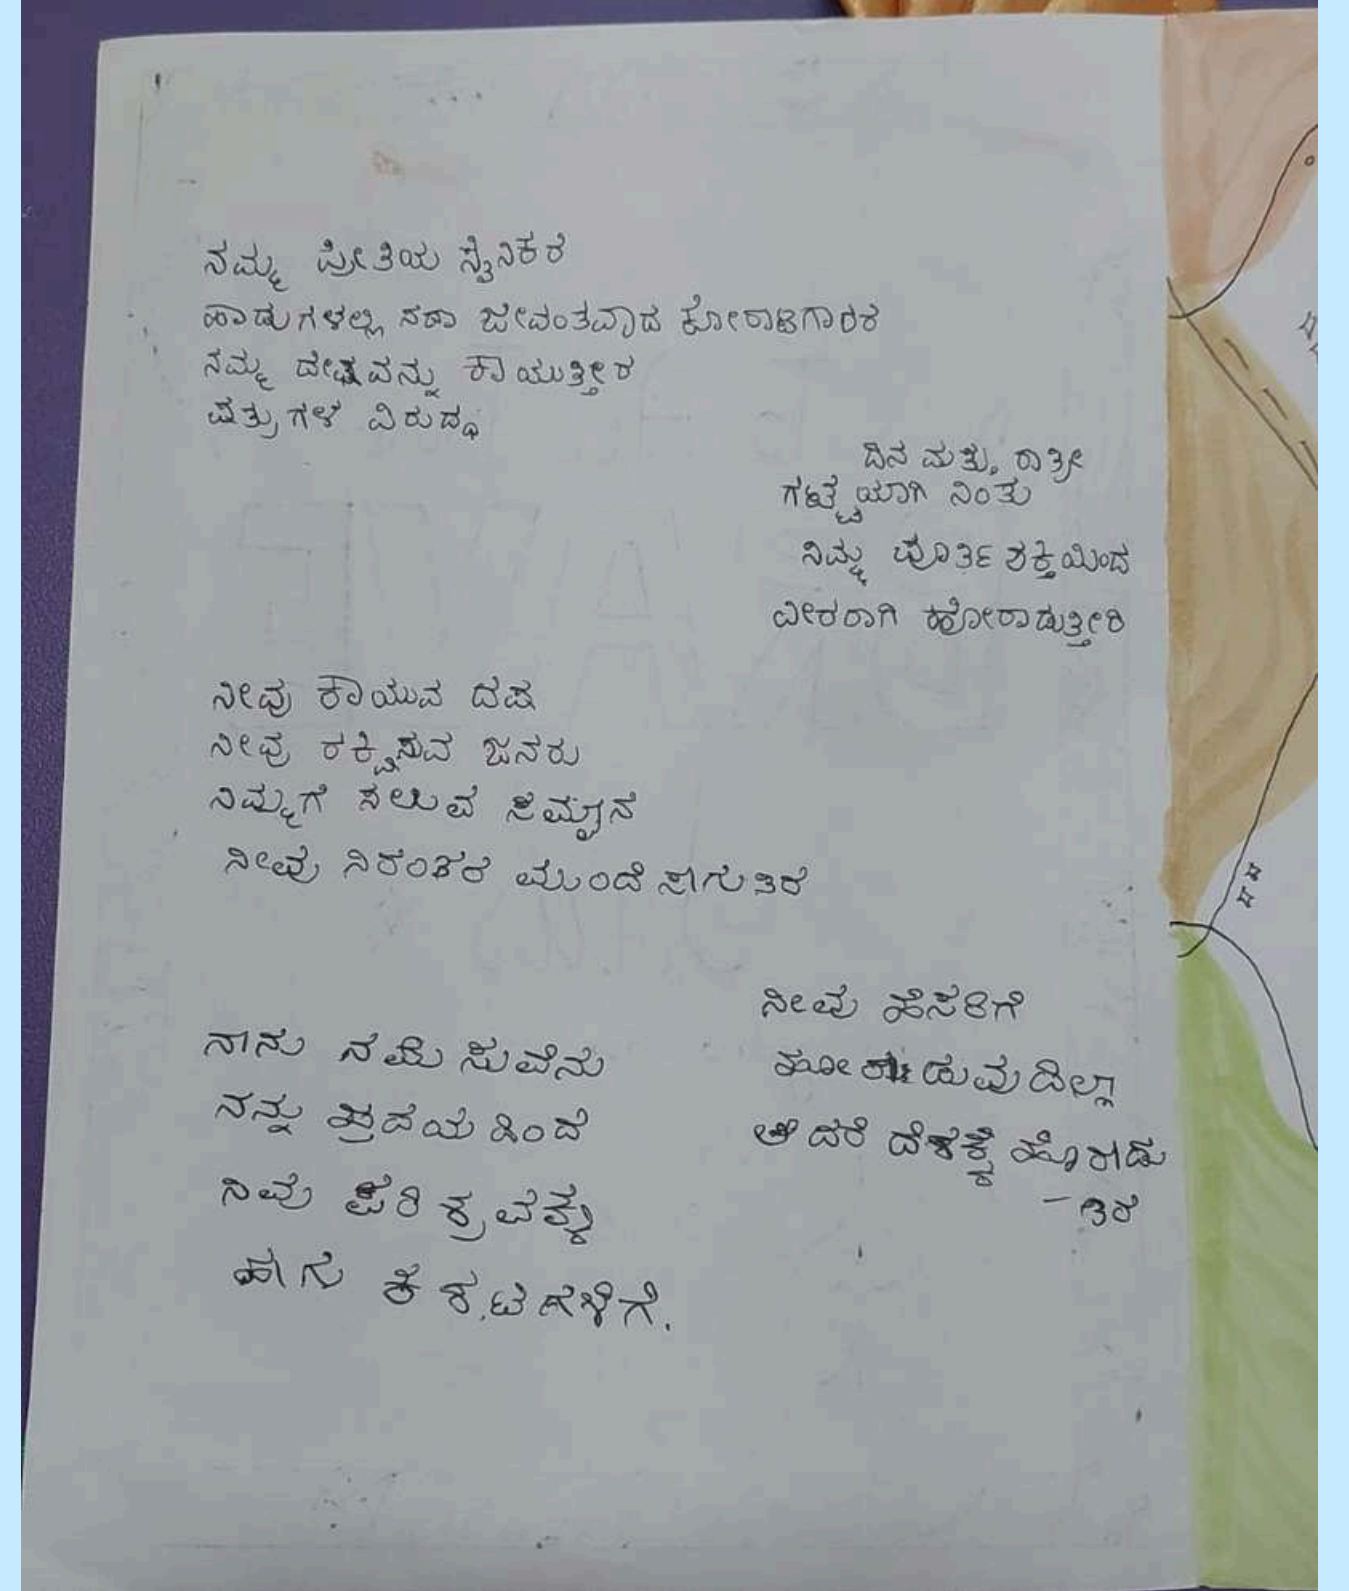 ನಮ್ಮ ಪ್ರೀತಿಯ ಸೈನಿಕರೆ
ಹಾಡುಗಳಲ್ಲಿ ಸದಾ ಜೀವಂತವಾದ ಹೋರಾಟಗಾರರ
ನಮ್ಮ ದೇಷವನ್ನು ಕಾಯುತ್ತೀರ
ಷತ್ರುಗಳ ವಿರುದ್ಧ
ದಿನ ಮತ್ತು ರಾತ್ರೀ
ಗಟ್ಟಿಯಾಗಿ ನಿಂತು
ನಿಮ್ಮ ಪೂರ್ತಿ ಶಕ್ತಿಯಿಂದ
ವೀರರಾಗಿ ಹೋರಾಡುತ್ತೀರಿ
ನೀವು ಕಾಯುವ ದೇಷ
ನೀವು ರಕ್ಷಿಸುವ ಜನರು
ನಿಮ್ಮಗೆ ಸಲುವ ಸಮ್ಮಾನ
ನೀವು ನಿರಂತರ ಮುಂದೆ ಸಾಗುತಿರೆ
ನೀವು ಹೆಸರಿಗೆ
ಹೋರಾಡುವುದಿಲ್ಲಾ
ಆದರೆ ದೆಶಕ್ಕೆ ಹೊರಾಡು
- ತಿರ
ನಾನು ನಮಿಸುವೆನು
ನನ್ನು ಹ್ರದಯದಿಂದೆ
ನಿವು ಪರಿಶ್ರಮಕ್ಕೆ
ಹಾಗು ಕಶ್ಟಗಳಿಗೆ.